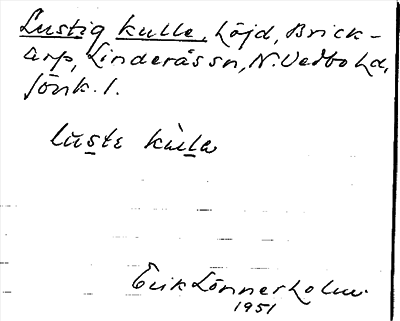 Lustig kulle, höjd, Brick-
arp, Linderås sn, N. Vedbo hd,
Jönk. l.
lùste kùlla
Erik Lönnerholm
1951